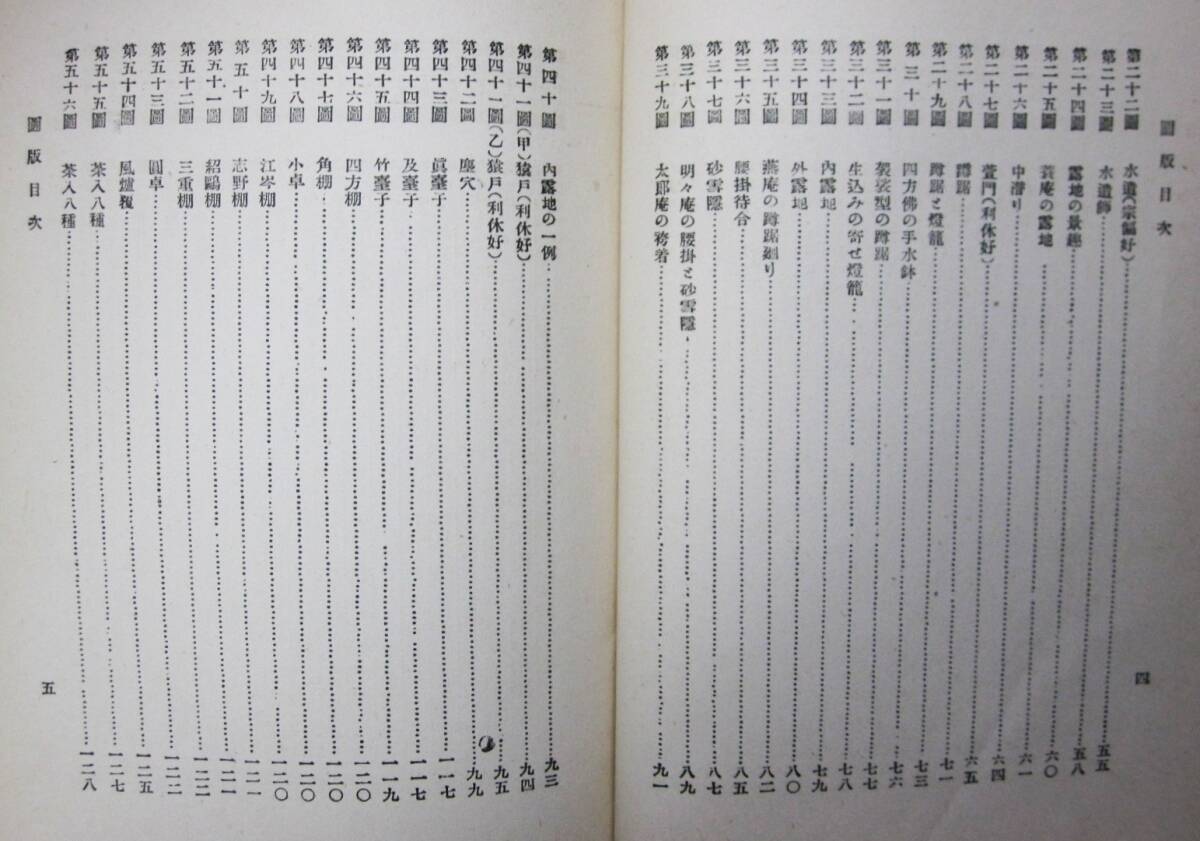 圖版目次
第二十二圖 水遣(宗偏好)……五五
第二十三圖 水遣飾……五五
第二十四圖 露地の景趣……五八
第二十五圖 蓑庵の露地……六〇
第二十六圖 中潜り……六一
第二十七圖 萱門(利休好)……六四
第二十八圖 蹲踞……六五
第二十九圖 蹲踞と燈籠……七一
第三十圖 四方佛の手水鉢……七三
第三十一圖 袈裟型の蹲踞……七六
第三十二圖 生込みの寄せ燈籠……七七
第三十三圖 內露地……七八
第三十四圖 外露地……七九
第三十五圖 燕庵の蹲踞廻り……八〇
第三十六圖 腰掛待合……八二
第三十七圖 砂雪隱……八五
第三十八圖 明々庵の腰掛と砂雪隱……八七
第三十九圖 太郎庵の袴着……八九
九一
四
第四十圖 內露地の一例……九三
第四十一圖(甲) 猿戸(利休好)……九四
第四十一圖(乙) 猿戸(利休好)……九五
第四十二圖 塵穴……九九
第四十三圖 眞臺子……一一七
第四十四圖 及臺子……一一七
第四十五圖 竹臺子……一一九
第四十六圖 四方棚……一二〇
第四十七圖 角棚……一二〇
第四十八圖 小卓……一二〇
第四十九圖 江岑棚……一二〇
第五十圖 志野棚……一二一
第五十一圖 紹鷗棚……一二一
第五十二圖 三重棚……一二二
第五十三圖 圓卓……一二二
第五十四圖 風爐覆……一二五
第五十五圖 茶入八種……一二七
第五十六圖 茶入八種……一二八
圖版目次
五